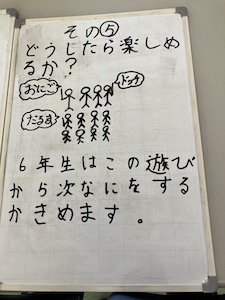 その⑤
どうしたら楽しめ
るか？
おにご
ドッチ
だるま
6年生はこの遊び
から次なにをする
かきめます。